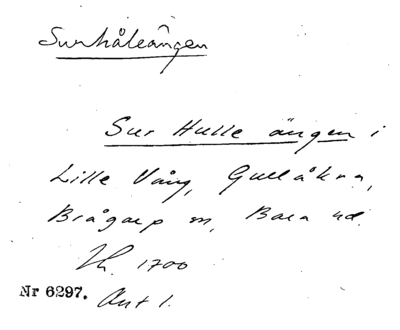 Surhåleängen
Sur Hulle ängen i
Lille Vång, Gullåkra,
Brågarp sn, Bara hd.
Lh. 1700
Nr 6297. Akt 1.